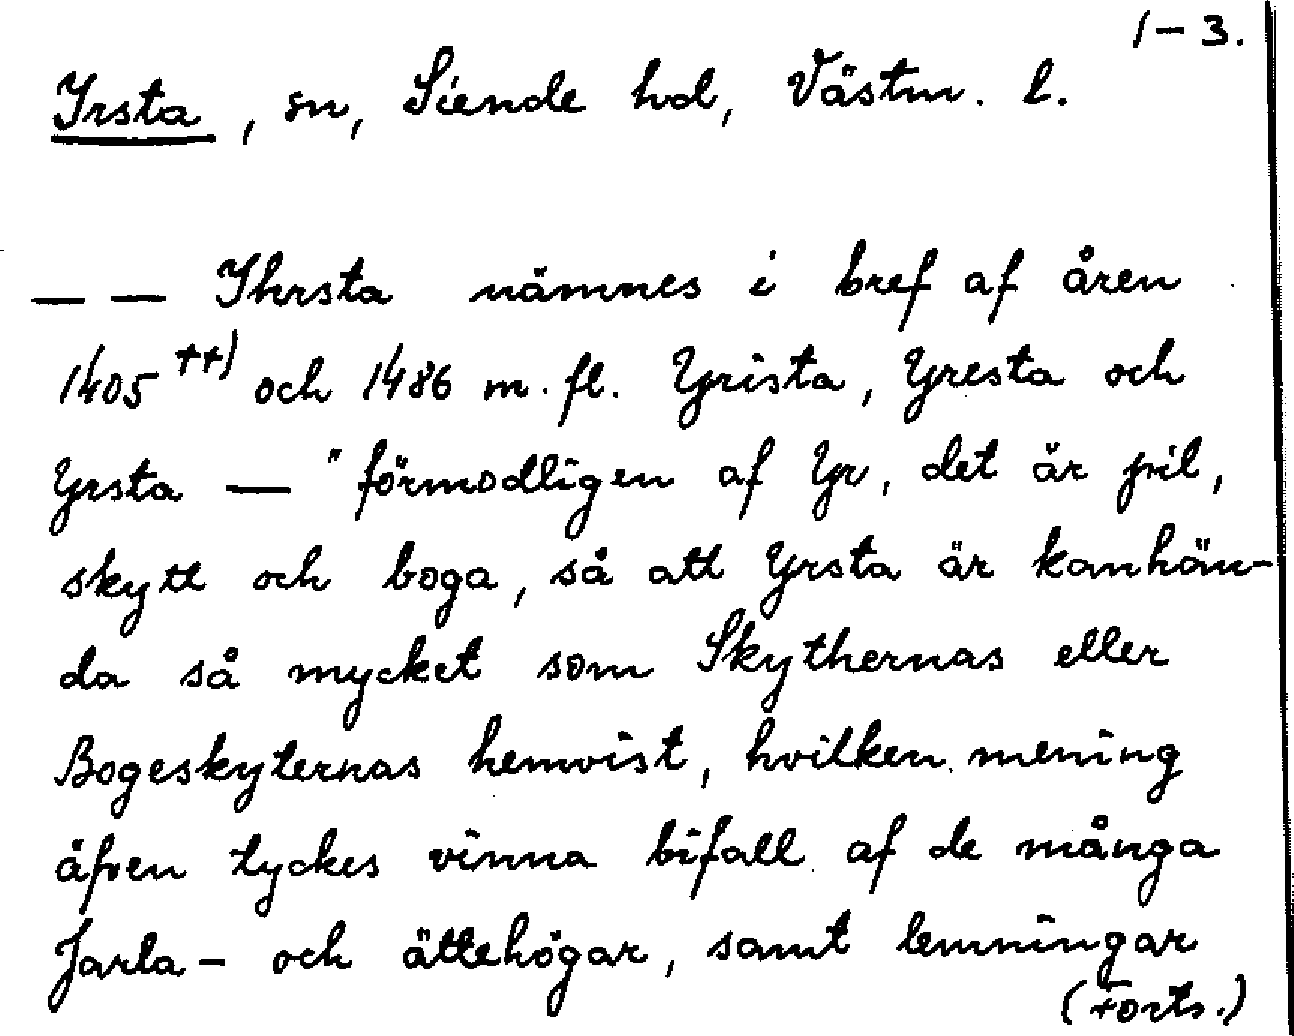 1-3.
Irsta, sn, Siende hd, Västm. l.
— — Ihrsta nämnes i bref af åren
1405 ++) och 1486 m. fl. Yrista, Yresta och
Yrsta — "förmodligen af Yr, det är pil,
skytt och boga, så att Yrsta är kanhän-
da så mycket som Skythernas eller
Bogeskyternas hemvist, hvilken mening
äfven tyckes vinna bifall af de många
Jarla- och ättehögar, samt lemningar
(Forts.)